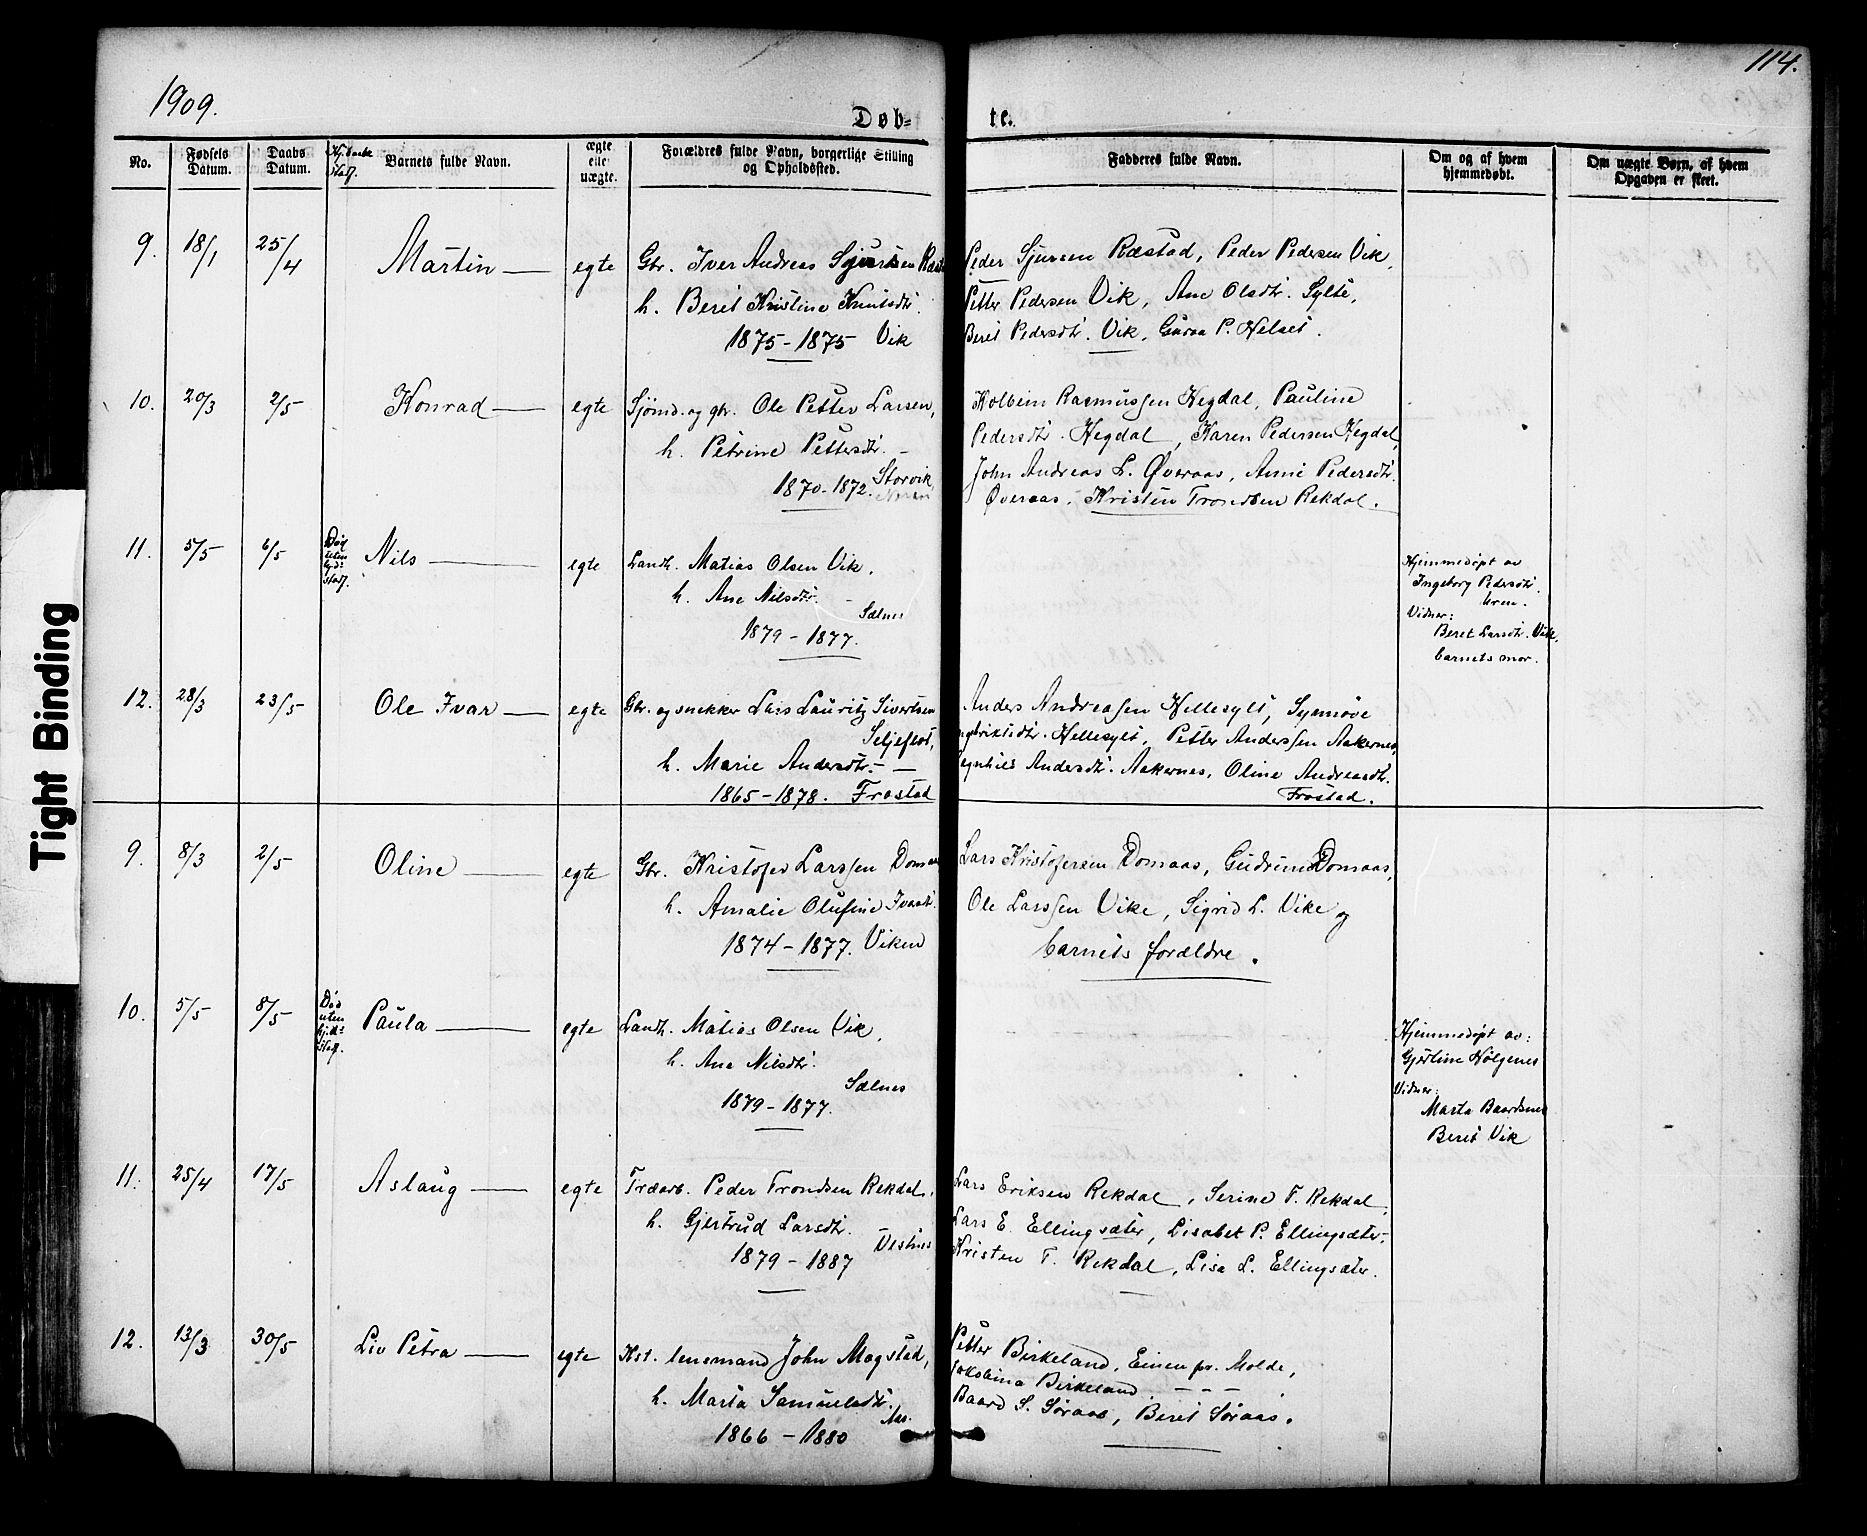 114.
1909.
Døb- te.
No. Fødsels Datum. Daabs Datum. Barnets fulde Navn. ægte eller uægte. Forældres fulde Navn, borgerlige Stilling og Opholdssted. Fadderes fulde Navn. Om og af hvem hjemmedøbt. Om uægte Børn, af hvem Opgaven er skeet.
9. 18/1 25/4 Martin egte Gbr. Iver Andreas Sjursen
h. Berit Kristine Knutsdtr.
1875 - 1875 Vik
Peder Sjursen Ræstad, Peder Pedersen Vik,
Petter Pedersen Vik, Ane Olsdtr. Sylte,
Berit Pedersdtr. Vik, Guroa P. Helset.
10. 20/3 2/5 Konrad egte Sjömd. og gbr. Ole Petter Larsen,
h. Petrine Pettersdtr. -
1870 - 1872. Storvik
Kolbein Rasmussen Hegdal, Pauline
Pedersdtr. Hegdal, Karen Pedersen Hegdal,
John Andreas L. Øveraas, Anne Pedersdtr.
Øveraas, Kristen Trondsen Rekdal.
11. 5/5 6/5 Død uten Nils egte Landh. Matias Olsen Vik,
h. Ane Nilsdtr. -
Sælnes
1879 - 1877.
Hjemmedøpt av
Ingeborg Pedersdtr.
Vidner:
Beret Larsdtr. Vik,
barnets mor.
12. 28/3 23/5 Ole Ivar egte Gbr. og snekker Lars Lauritz Sivertsen
Seljeflot,
h. Marie Andersdtr. -
1865 - 1878. Frostad
Anders Andreassen Hellesylt, Synnøve
Hellesylt, Petter Anderssen Aakernes,
Andersdtr. Aakernes, Oline Andreasdtr.
Frostad.
9. 8/3 2/5 Oline egte Gbr. Kristofer Larssen Domaas
h. Amalie Olufine
1874 - 1877. Viken
Lars Kristofersen Domaas, Gudrun Domaas,
Ole Larssen Vike, Sigrid L. Vike og
barnets forældre.
10. 5/5 8/5 Død uten Paula egte Landh. Matias Olsen Vik,
h. Ane Nilsdtr.
Sælnes
1879 - 1877.
Hjemmedøpt av:
Gjertine Hølgenes
Vidner:
Marta Baardsnes
Beret Vik
11. 25/4 17/5 Aslaug egte Træarb. Peder Trondsen Rekdal,
h. Gjertrud Larsdtr.
Vestnes
1879 - 1887
Lars Eriksen Rekdal, Serine T. Rekdal,
Lars E. Ellingsæter, Lisabet P. Ellingsæter,
Kristen T. Rekdal, Lisa L. Ellingsæter.
12. 13/3 30/5 Liv Petra egte Kst. lensmand John Magstad,
h. Marta Samuelsdtr.
Aas.
1866 - 1880
Petter Birkeland, Einen pr. Molde,
Jakobina Birkeland - - -
Baard S. Søraas, Beret Søraas.
Tight Binding